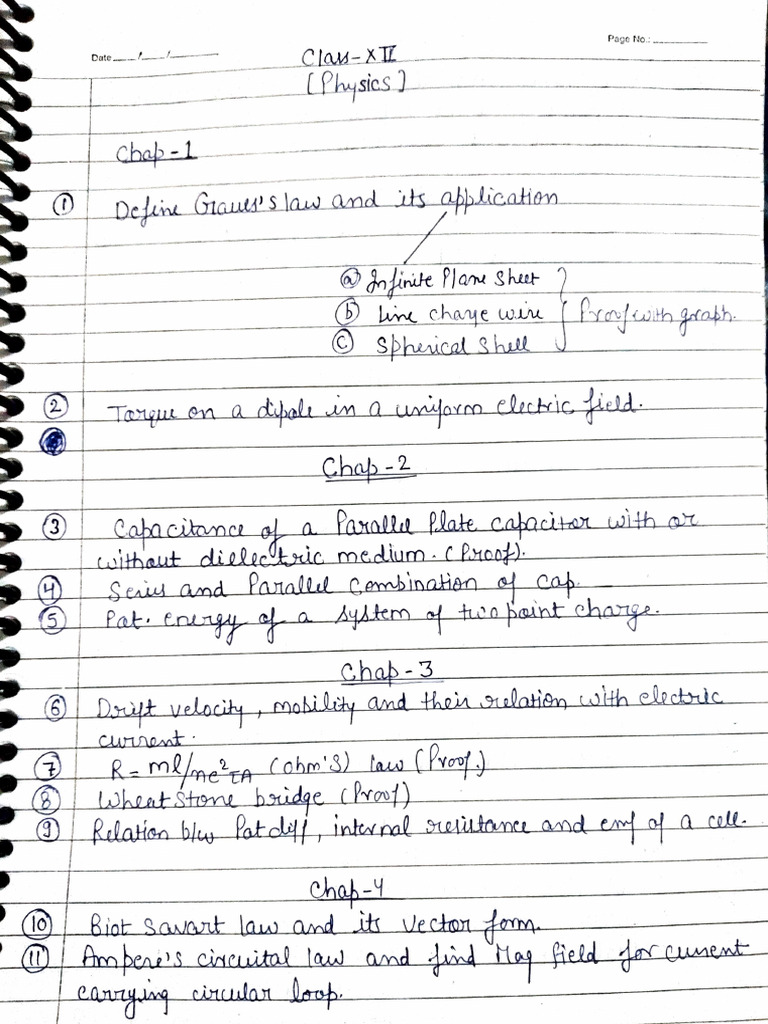 Page No.:
Date / /
Class-XII
[Physics]
Chap-1
① Define Grauss's law and its application
ⓐ Infinite Plane sheet
ⓑ Line charge wire
ⓒ Spherical Shell
Proof with graph.
② Torque on a dipole in a uniform electric field.
Chap-2
③ Capacitance of a Parallel Plate capacitor with or
without dielectric medium. (Proof).
④ Series and Parallel Combination of cap.
⑤ Pot. energy of a system of two point charge.
Chap-3
⑥ Drift velocity, mobility and their relation with electric
current.
⑦ R = ml/ne²τA (ohm's) law (Proof.)
⑧ Wheat stone bridge (Proof)
⑨ Relation b/w Pot diff, internal resistance and emf of a cell.
Chap-4
⑩ Biot Savart law and its vector form.
⑪ Ampere's circuital law and find Mag field for current
carrying circular loop.